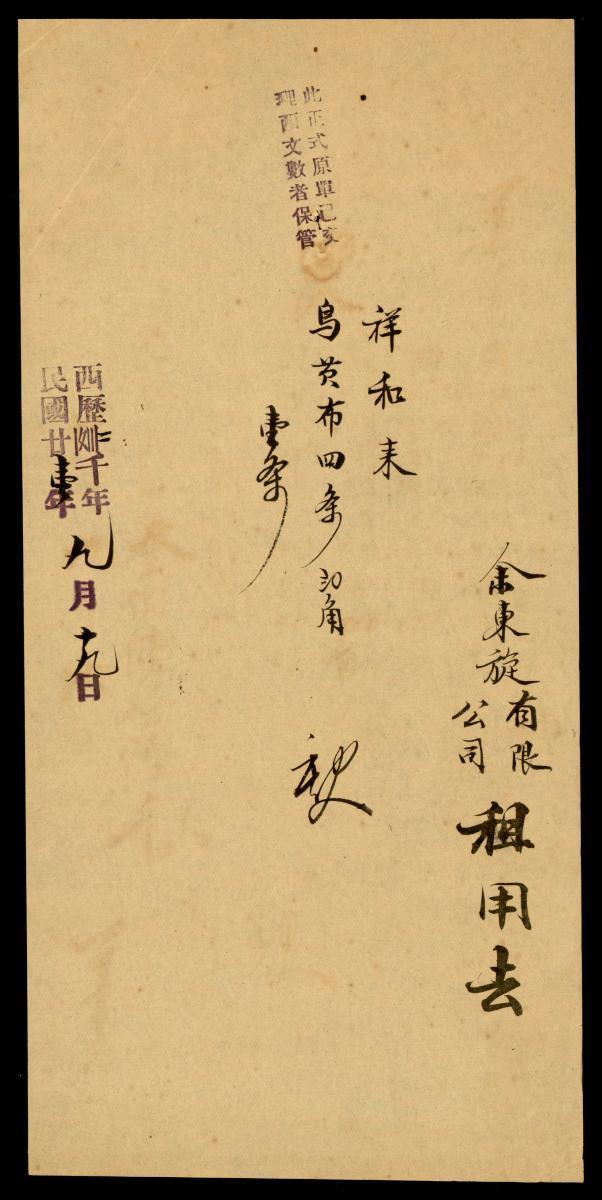 此正式原單已交
理西文數者保管
余東旋有限
公司
租用去
祥和来
烏英布四条 角
壹条
西歷 千年
民國廿壹年
九月十九日